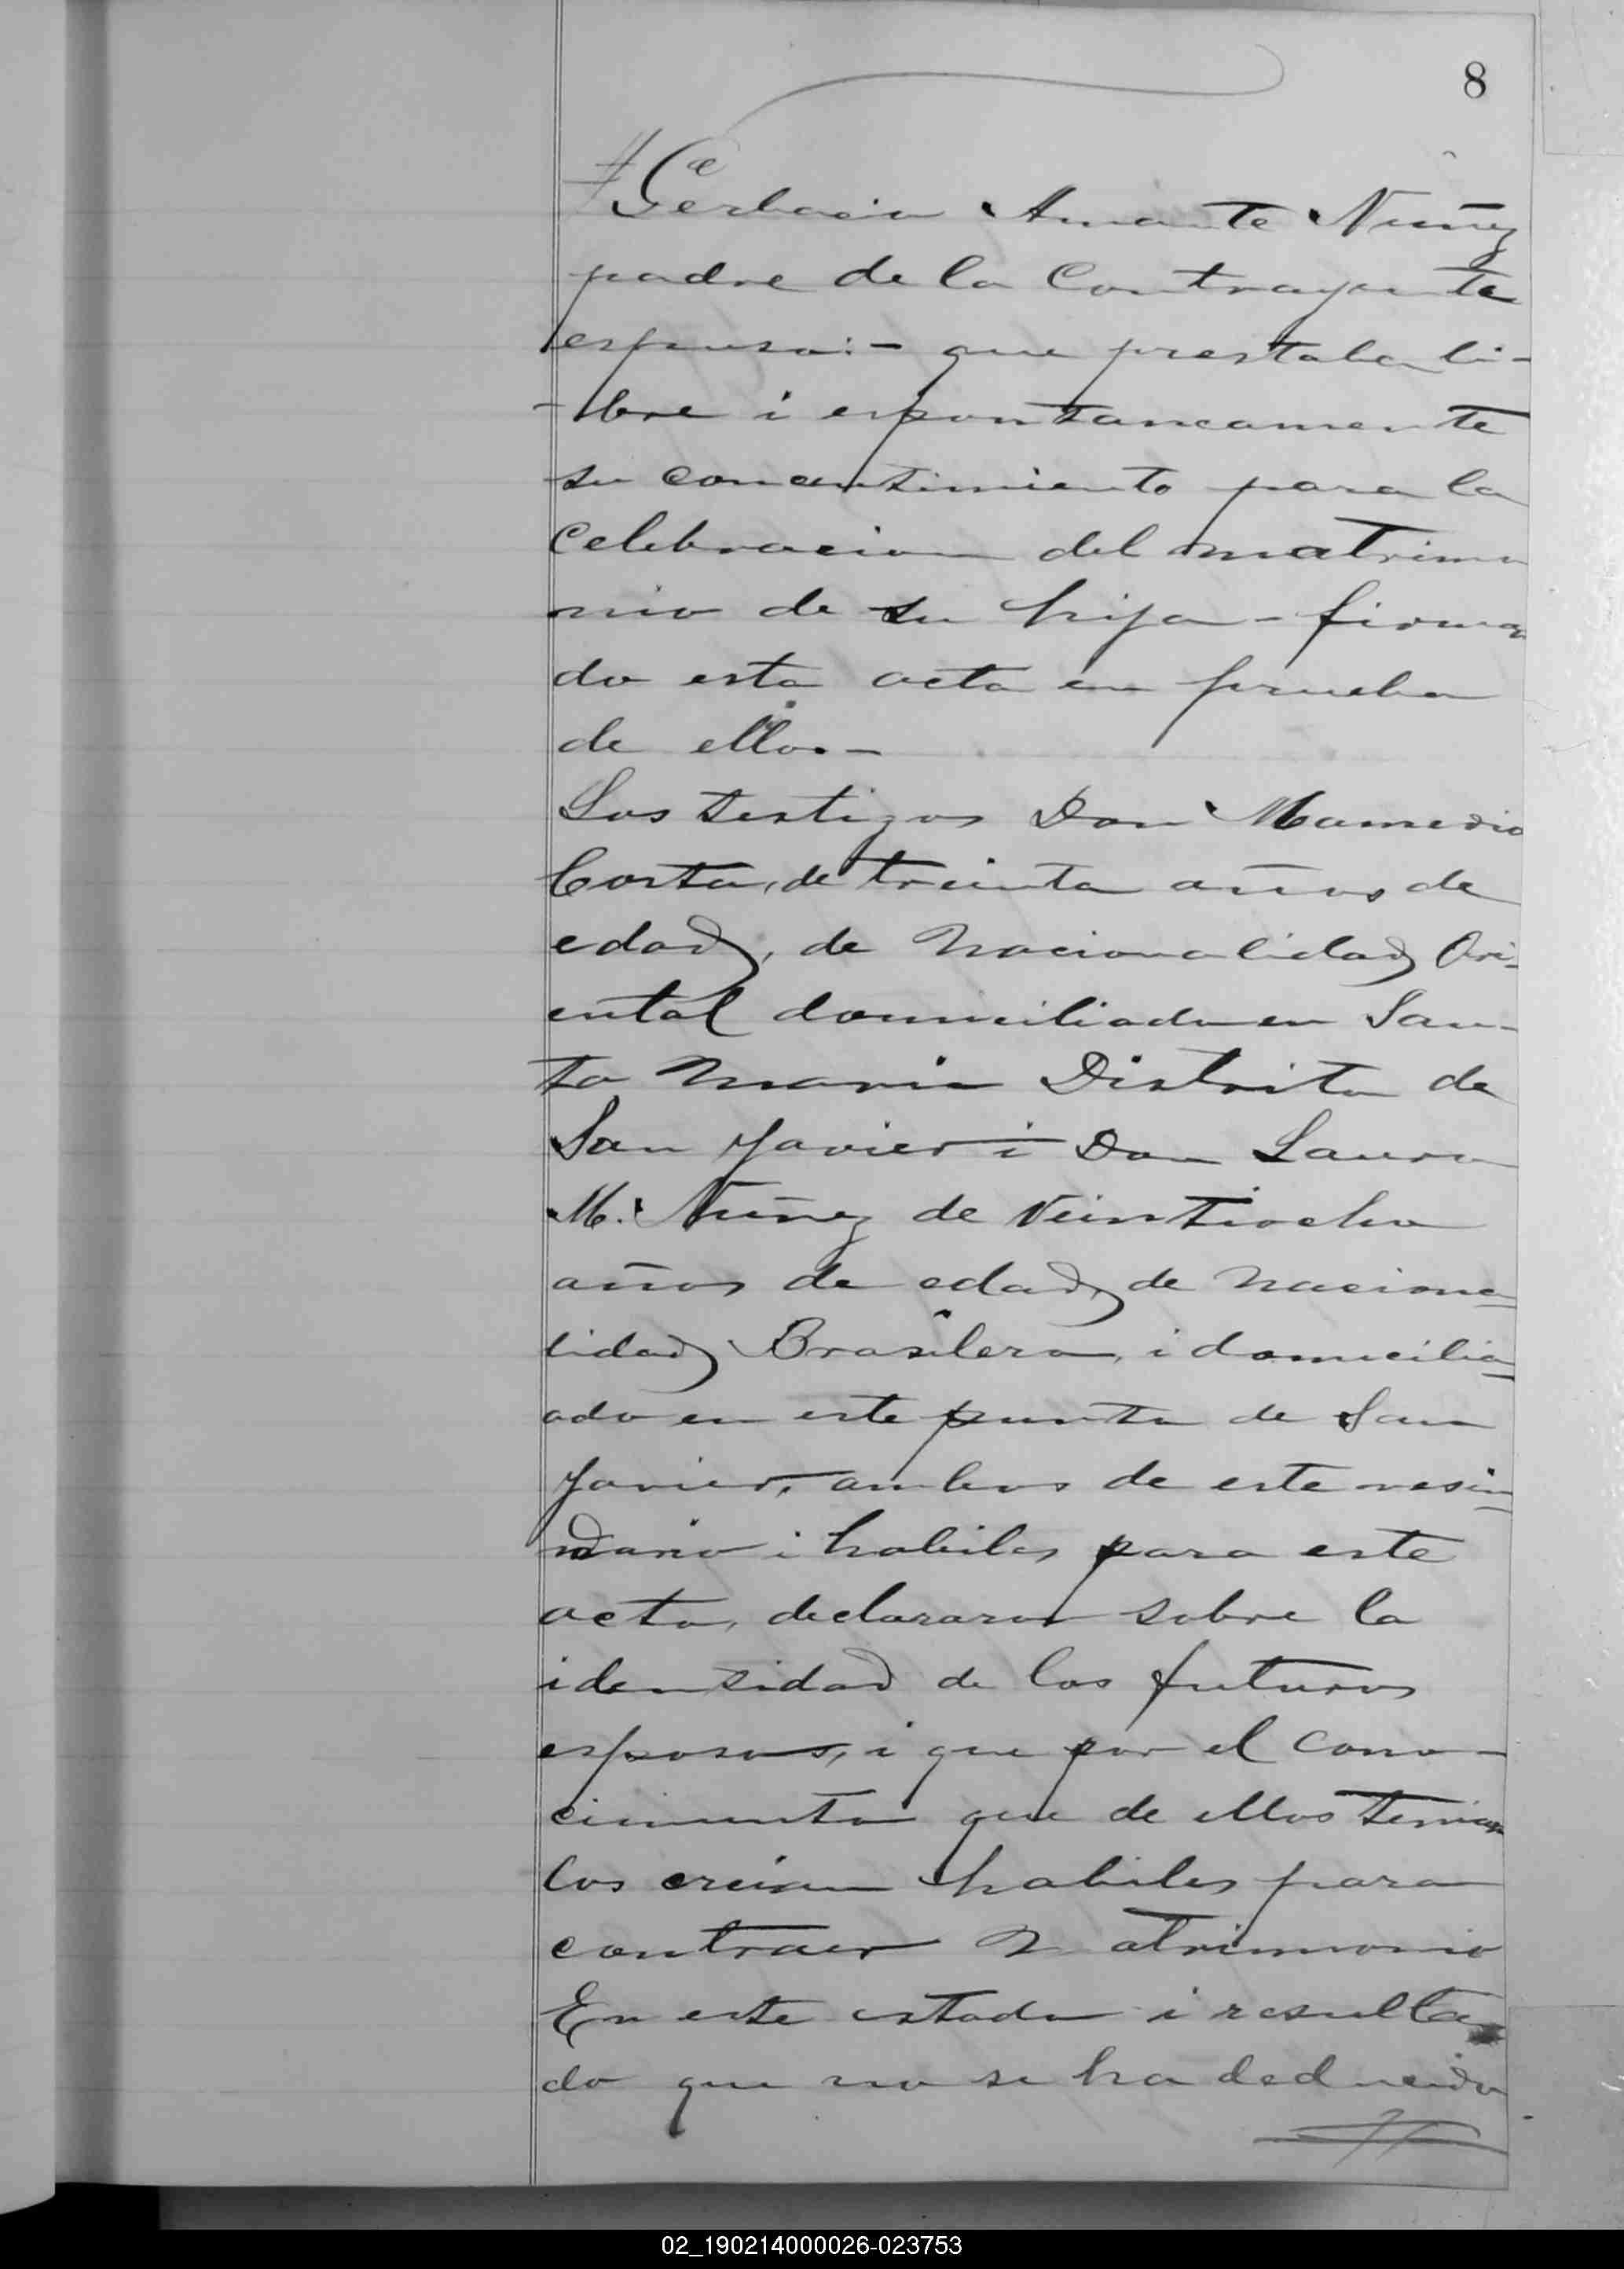 8
Gerbacio Amante Nuñez
padre de la Contrayente
espuso:- que prestaba li-
-bre i espontaneamente
su concentimiento para la
Celebracion del matrimo
nio de su hija - firman
do esta acta en prueba
de ello.-
Los testigos Don Mamerio
Costa, de treinta años de
edad, de Nacionalidad Ori-
ental domiciliado en San-
ta Maria Distrito de
San Javier i Don Lauro
M. Nuñez de Veintiocho
años de edad, de Naciona-
lidad Brasilera, i domicilia-
ado en este punto de San
Javier, ambos de este vesin-
dario i habiles para este
acto, declararon sobre la
identidad de los futuros
esposos, i que por el cono-
cimiento que de ellos tenian
los creian habiles para
contraer Matrimonio
En este estado i resultan
do que no se ha deducido
02_190214000026-023753